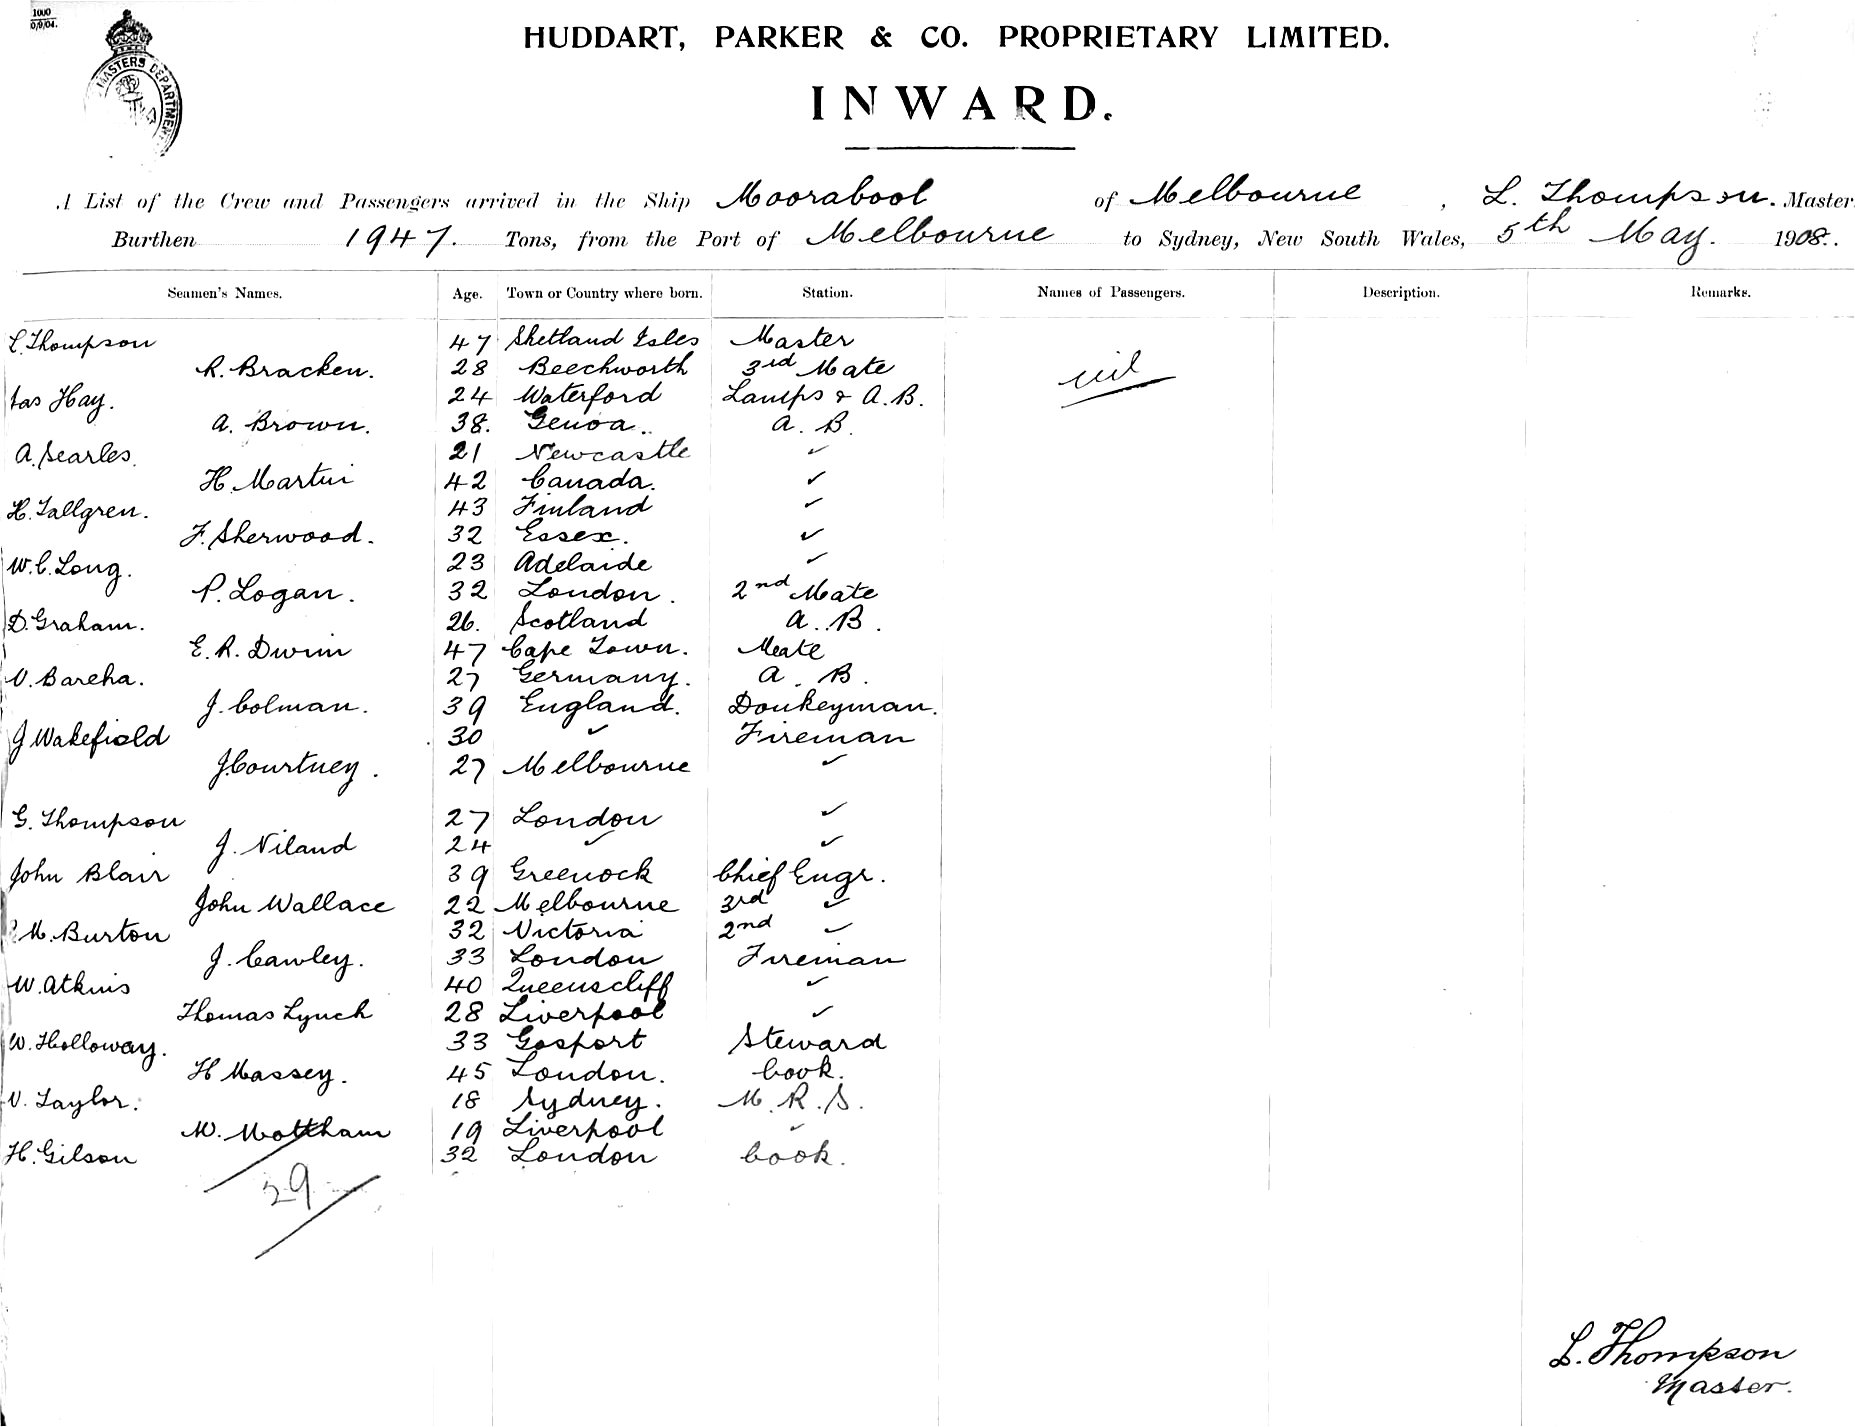 1000
HUDDART, PARKER & CO. PROPRIETARY LIMITED.
MASTERS DEPARTMENT
INWARD.
A List of the Crew and Passengers arrived in the Ship Moorabool of Melbourne, L. Thompson. Master
Burthen 1947. Tons, from the Port of Melbourne to Sydney, New South Wales, 5th May. 1908.
Seamen's Names. Age. Town or Country where born. Station. Names of Passengers. Description. Remarks.
L. Thompson 47 Shetland Isles Master
R. Bracken. 28 Beechworth 3rd Mate nil
Jas Hay. 24 Waterford Lamps & A.B.
A. Brown. 38. Genoa. A. B.
A. Searles. 21 Newcastle ✓
H. Martin 42 Canada. ✓
H. Tallgren. 43 Finland ✓
F. Sherwood. 32 Essex. ✓
W. C. Long. 23 Adelaide ✓
P. Logan. 32 London. 2nd Mate
D. Graham. 26. Scotland A. B.
E. R. Dwin 47 Cape Town. Mate
V. Bareha. 27 Germany. A. B.
J. Colman. 39 England. Donkeyman.
J Wakefield 30 ✓ Fireman
J. Courtney. 27 Melbourne ✓
G. Thompson 27 London ✓
J. Niland 24 ✓ ✓
John Blair 39 Greenock Chief Engr.
John Wallace 22 Melbourne 3rd ✓
M. Burton 32 Victoria 2nd ✓
J. Cawley. 33 London Fireman
W. Atkins 40 Queenscliff ✓
Thomas Lynch 28 Liverpool ✓
W. Holloway. 33 Gosport Steward
H Massey. 45 London. Cook.
V. Taylor. 18 Sydney. M. R. S.
W. Mottham 19 Liverpool ✓
H. Gilson 32 London Cook.
29
L. Thompson
Master.